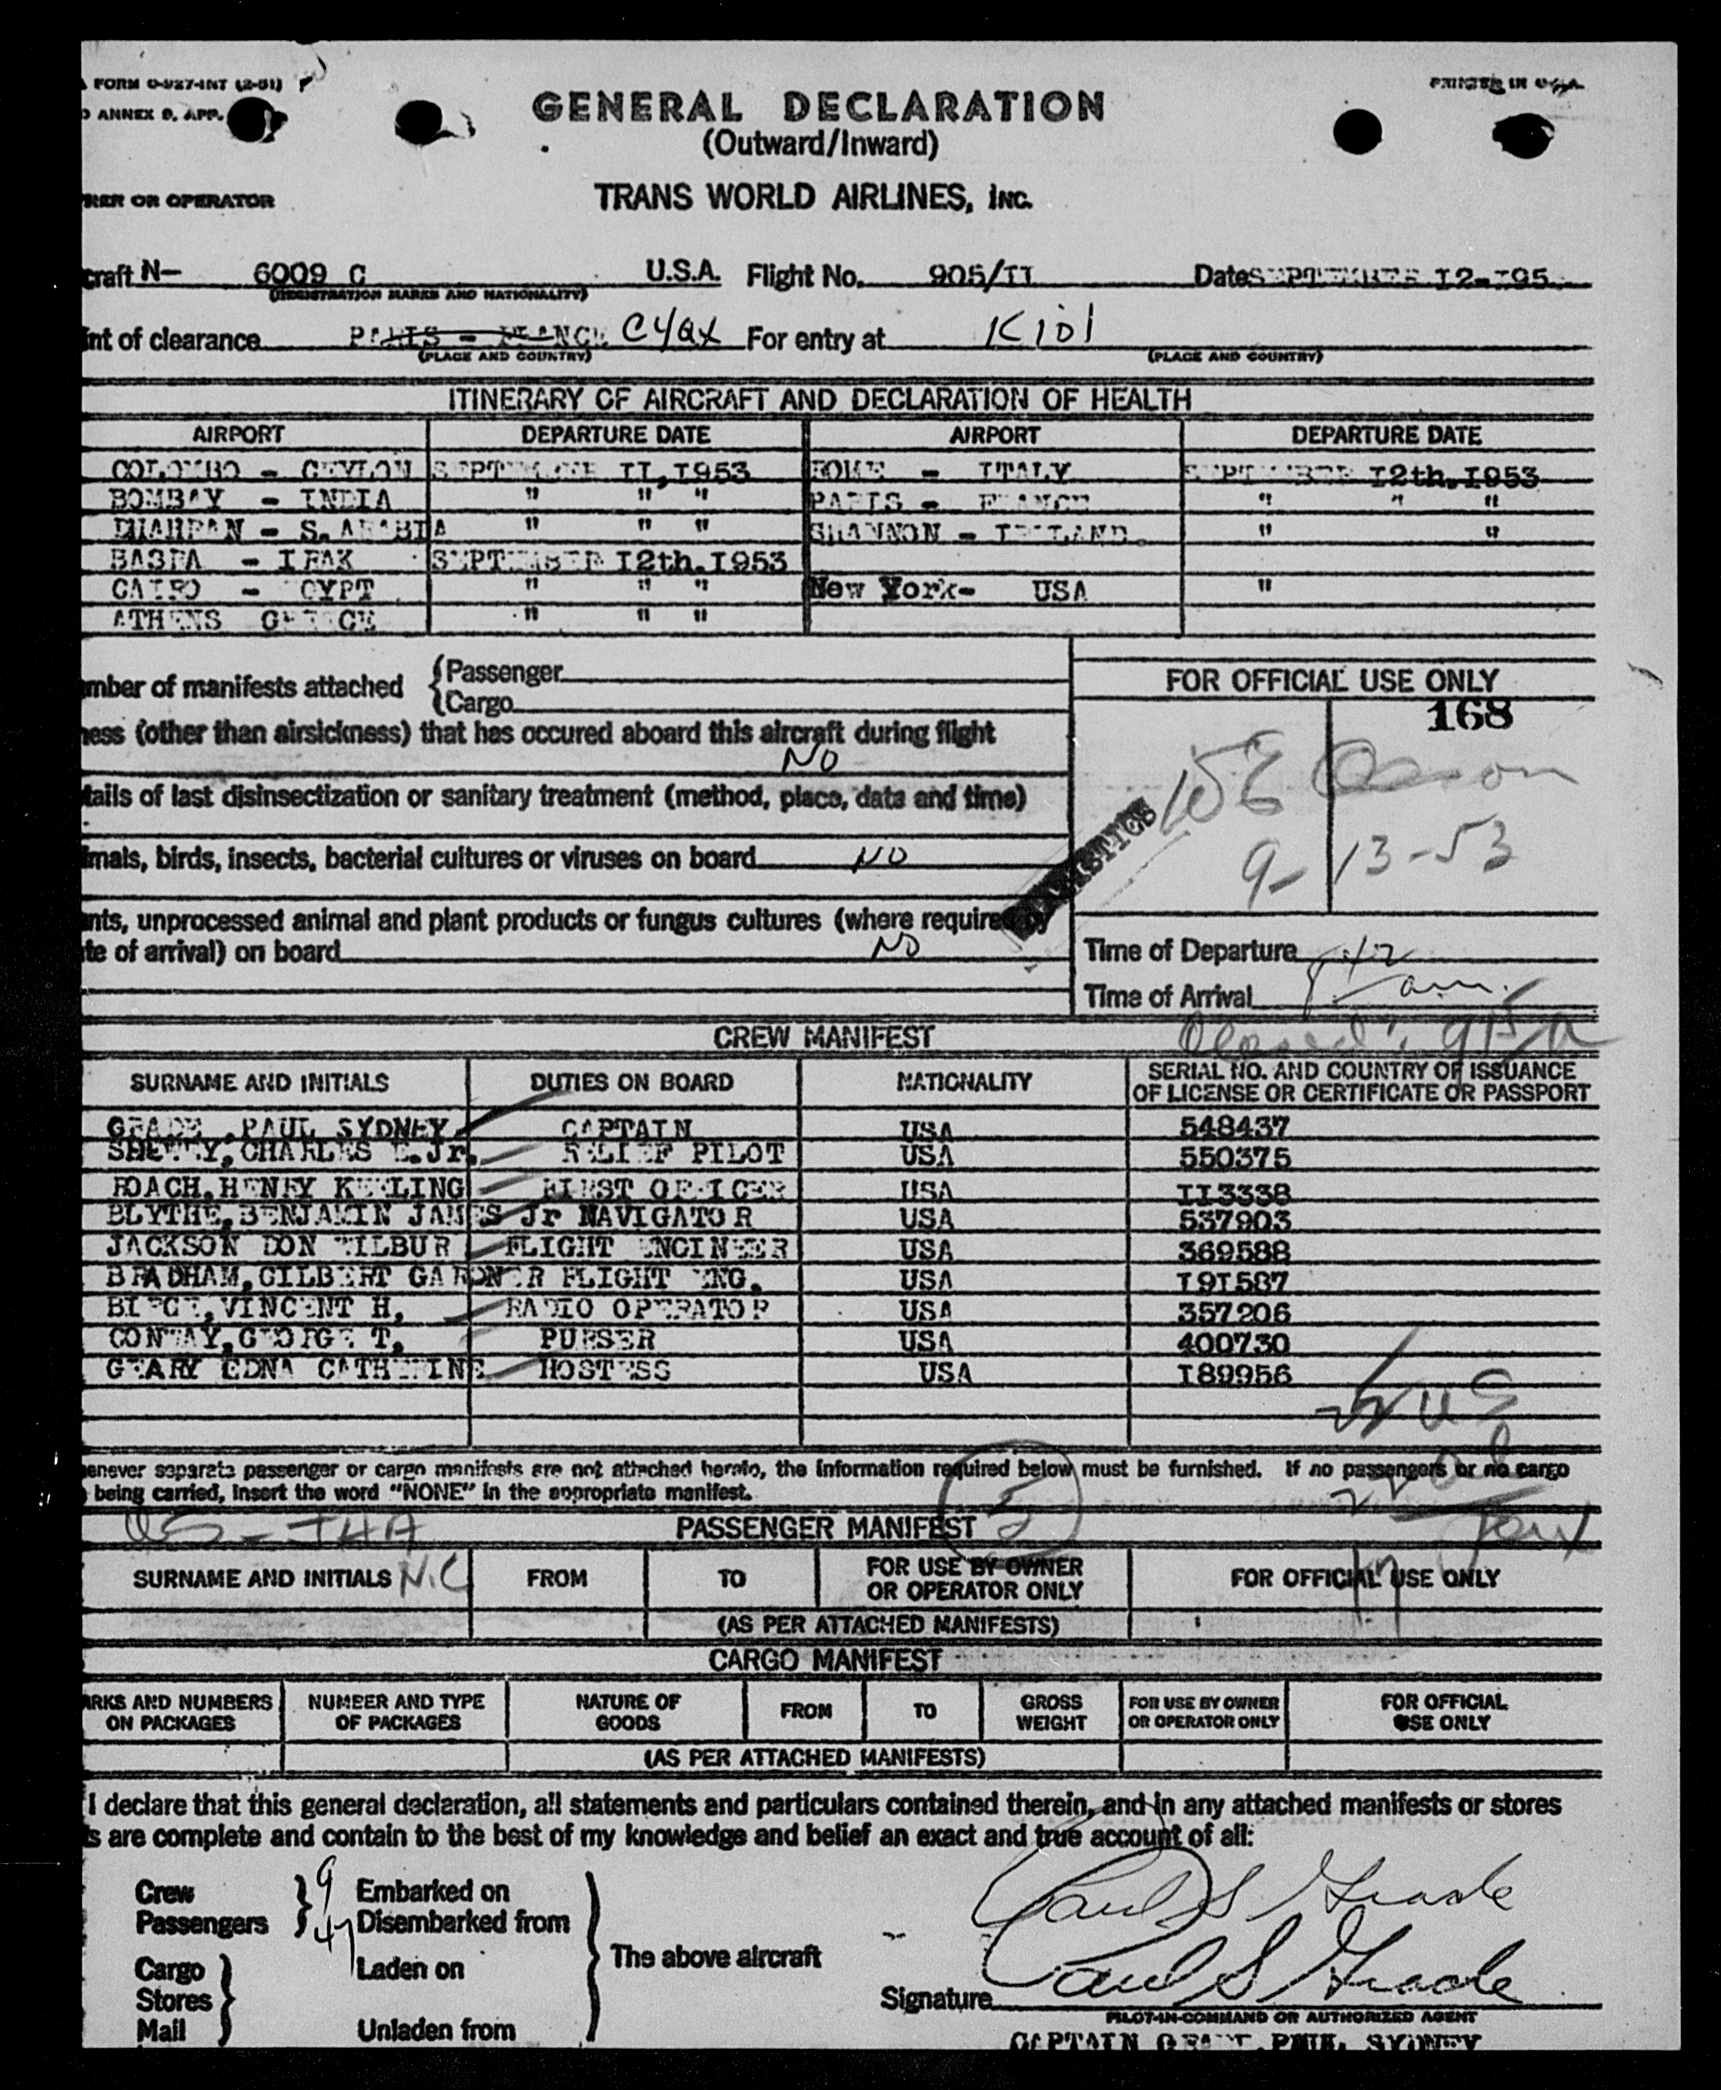 FORM O-927-INT (2-51)
PRINTED IN U.S.A.
ANNEX 9, APP.
GENERAL DECLARATION
(Outward/Inward)
RER OR OPERATOR
TRANS WORLD AIRLINES, INC.
craft N- 6009 C U.S.A. Flight No. 905/II Date SEPTEMBER 12-195
(REGISTRATION MARKS AND NATIONALITY)
nt of clearance PARIS - FRANCE CYQX For entry at KIDL
(PLACE AND COUNTRY) (PLACE AND COUNTRY)
ITINERARY OF AIRCRAFT AND DECLARATION OF HEALTH
AIRPORT DEPARTURE DATE AIRPORT DEPARTURE DATE
COLOMBO - CEYLON SEPTEMBER II,I953 ROME - ITALY SEPTEMBER I2th.I953
BOMBAY - INDIA " " " PARIS - FRANCE " " "
DHAHRAN - S. ARABIA " " " SHANNON - IRELAND. " "
BASRA - IRAK SEPTEMBER I2th.I953
CAIRO - EGYPT " " " New York- USA "
ATHENS GREECE " " "
mber of manifests attached {Passenger
{Cargo
FOR OFFICIAL USE ONLY
168
ness (other than airsickness) that has occured aboard this aircraft during flight
No
tails of last disinsectization or sanitary treatment (method, place, date and time)
STATISTICS
9-13-53
imals, birds, insects, bacterial cultures or viruses on board NO
nts, unprocessed animal and plant products or fungus cultures (where required by
te of arrival) on board NO
Time of Departure
Time of Arrival am.
CREW MANIFEST
SURNAME AND INITIALS DUTIES ON BOARD NATIONALITY SERIAL NO. AND COUNTRY OF ISSUANCE
OF LICENSE OR CERTIFICATE OR PASSPORT
GRADE ,PAUL SYDNEY CAPTAIN USA 548437
CHARLES E.Jr. RELIEF PILOT USA 550375
ROACH,HENRY KEELING FIRST OFFICER USA II3338
BLYTHE,BENJAMIN JAMES Jr NAVIGATOR USA 537903
JACKSON DON WILBUR FLIGHT ENGINEER USA 369588
BRADHAM,GILBERT GARDNER FLIGHT ENG. USA I9I587
VINCENT H, RADIO OPERATOR USA 357206
CONWAY,GEORGE T, PURSER USA 400730
GEARY EDNA CATHERINE HOSTESS USA I89956
enever separate passenger or cargo manifests are not attached hereto, the information required below must be furnished. If no passengers or no cargo
being carried, insert the word "NONE" in the appropriate manifest.
PASSENGER MANIFEST 5
SURNAME AND INITIALS N.C FROM TO FOR USE BY OWNER
OR OPERATOR ONLY FOR OFFICIAL USE ONLY
(AS PER ATTACHED MANIFESTS)
CARGO MANIFEST
ARKS AND NUMBERS
ON PACKAGES NUMBER AND TYPE
OF PACKAGES NATURE OF
GOODS FROM TO GROSS
WEIGHT FOR USE BY OWNER
OR OPERATOR ONLY FOR OFFICIAL
USE ONLY
(AS PER ATTACHED MANIFESTS)
I declare that this general declaration, all statements and particulars contained therein, and in any attached manifests or stores
s are complete and contain to the best of my knowledge and belief an exact and true account of all:
Crew 9 Embarked on
Passengers 47 Disembarked from
The above aircraft
Cargo Laden on
Stores
Mail Unladen from
Paul S Grade
Signature Paul S Grade
PILOT-IN-COMMAND OR AUTHORIZED AGENT
CAPTAIN GRADE, PAUL SYDNEY